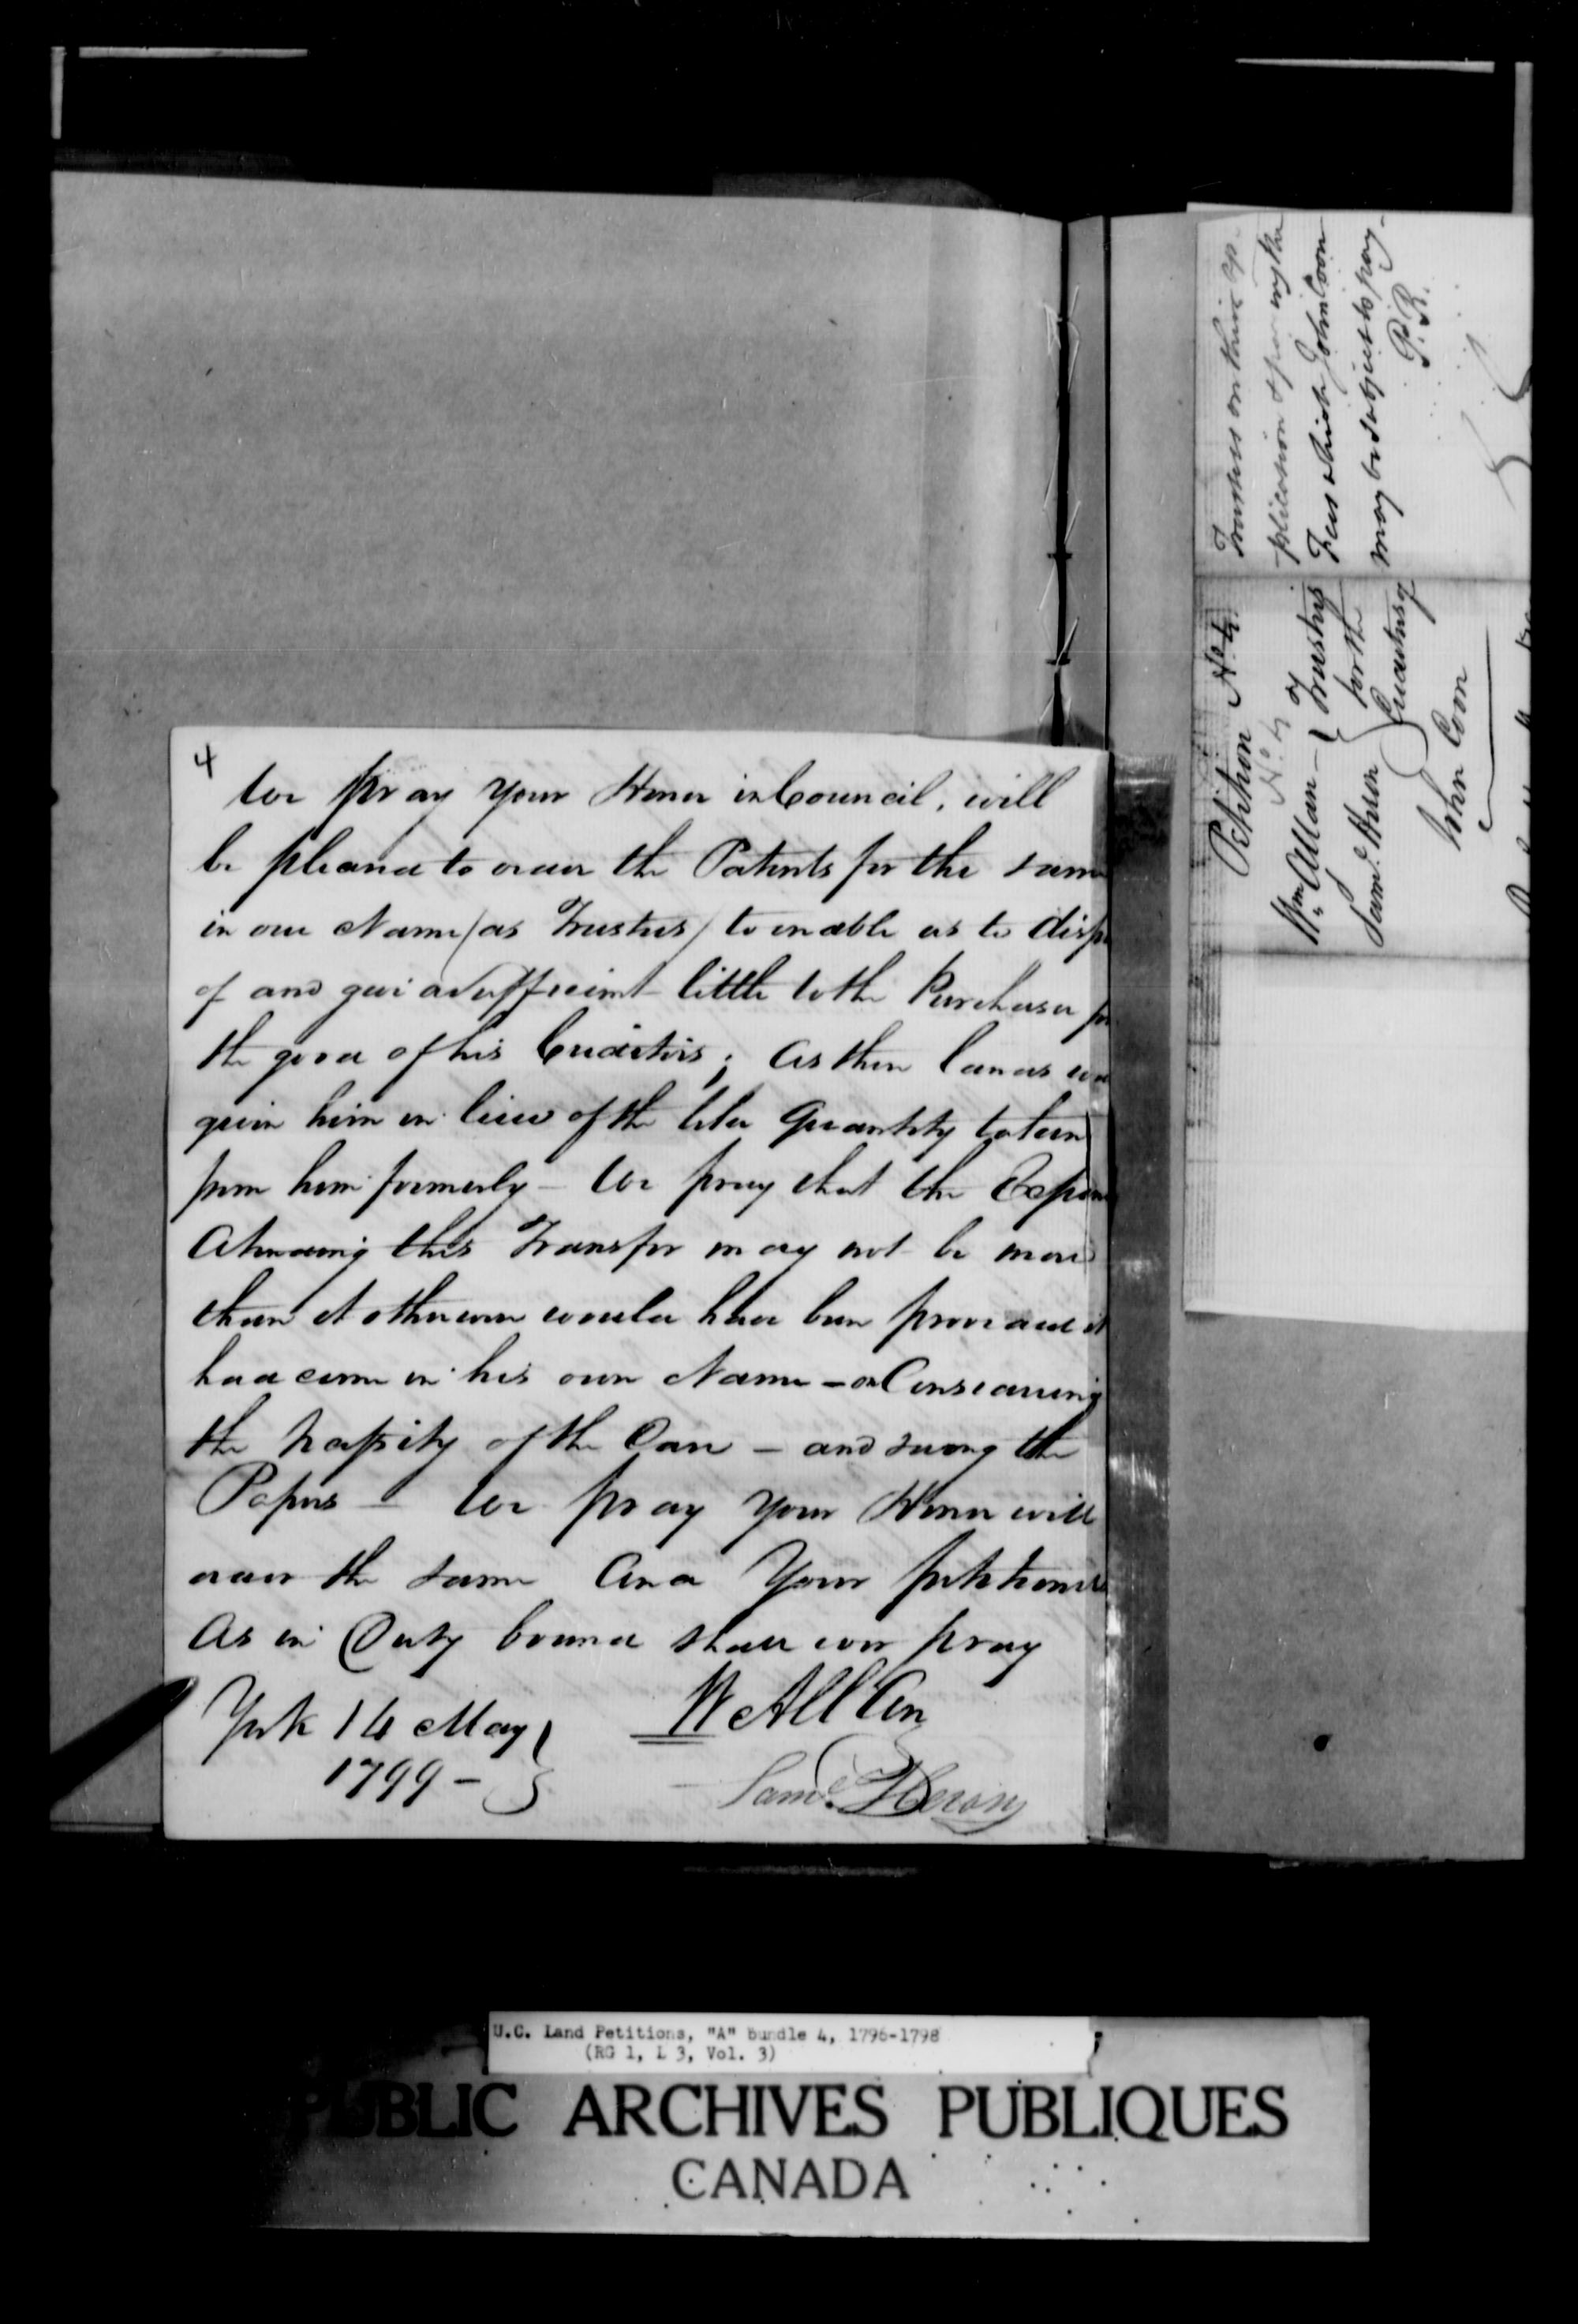 4
We pray your Honor in Council, will
be pleased to order the Patents for the same
in our Name (as Trustees) to enable us to disp
of and give a sufficient tittle to the Purchaser for
the good of his Creditors; as these lands
given him in lieu of the like Quantity taken
from him formerly – We pray that the Expen
Attending this Transfer may not be more
than it otherwise would have been provided it
had come in his own Name – or Considering
the of the Case – and seeing the
Papers – We pray your Honor will
order the same And Your petitioners
As in Duty bound shall ever pray
York 14 May
1799 –
W Allan
Saml. Heron
Petition No. 4.
No. 4 of
Wm. Allan – Trustees
Saml. Heron for the Creditors of
John Coon
Trustees on their ap-
plication upon the
Fees which John Coon
may be subject to pay-
P. R.
U.C. Land Petitions, "A" bundle 4, 1796-1798
(RG 1, L 3, Vol. 3)
PUBLIC ARCHIVES PUBLIQUES
CANADA